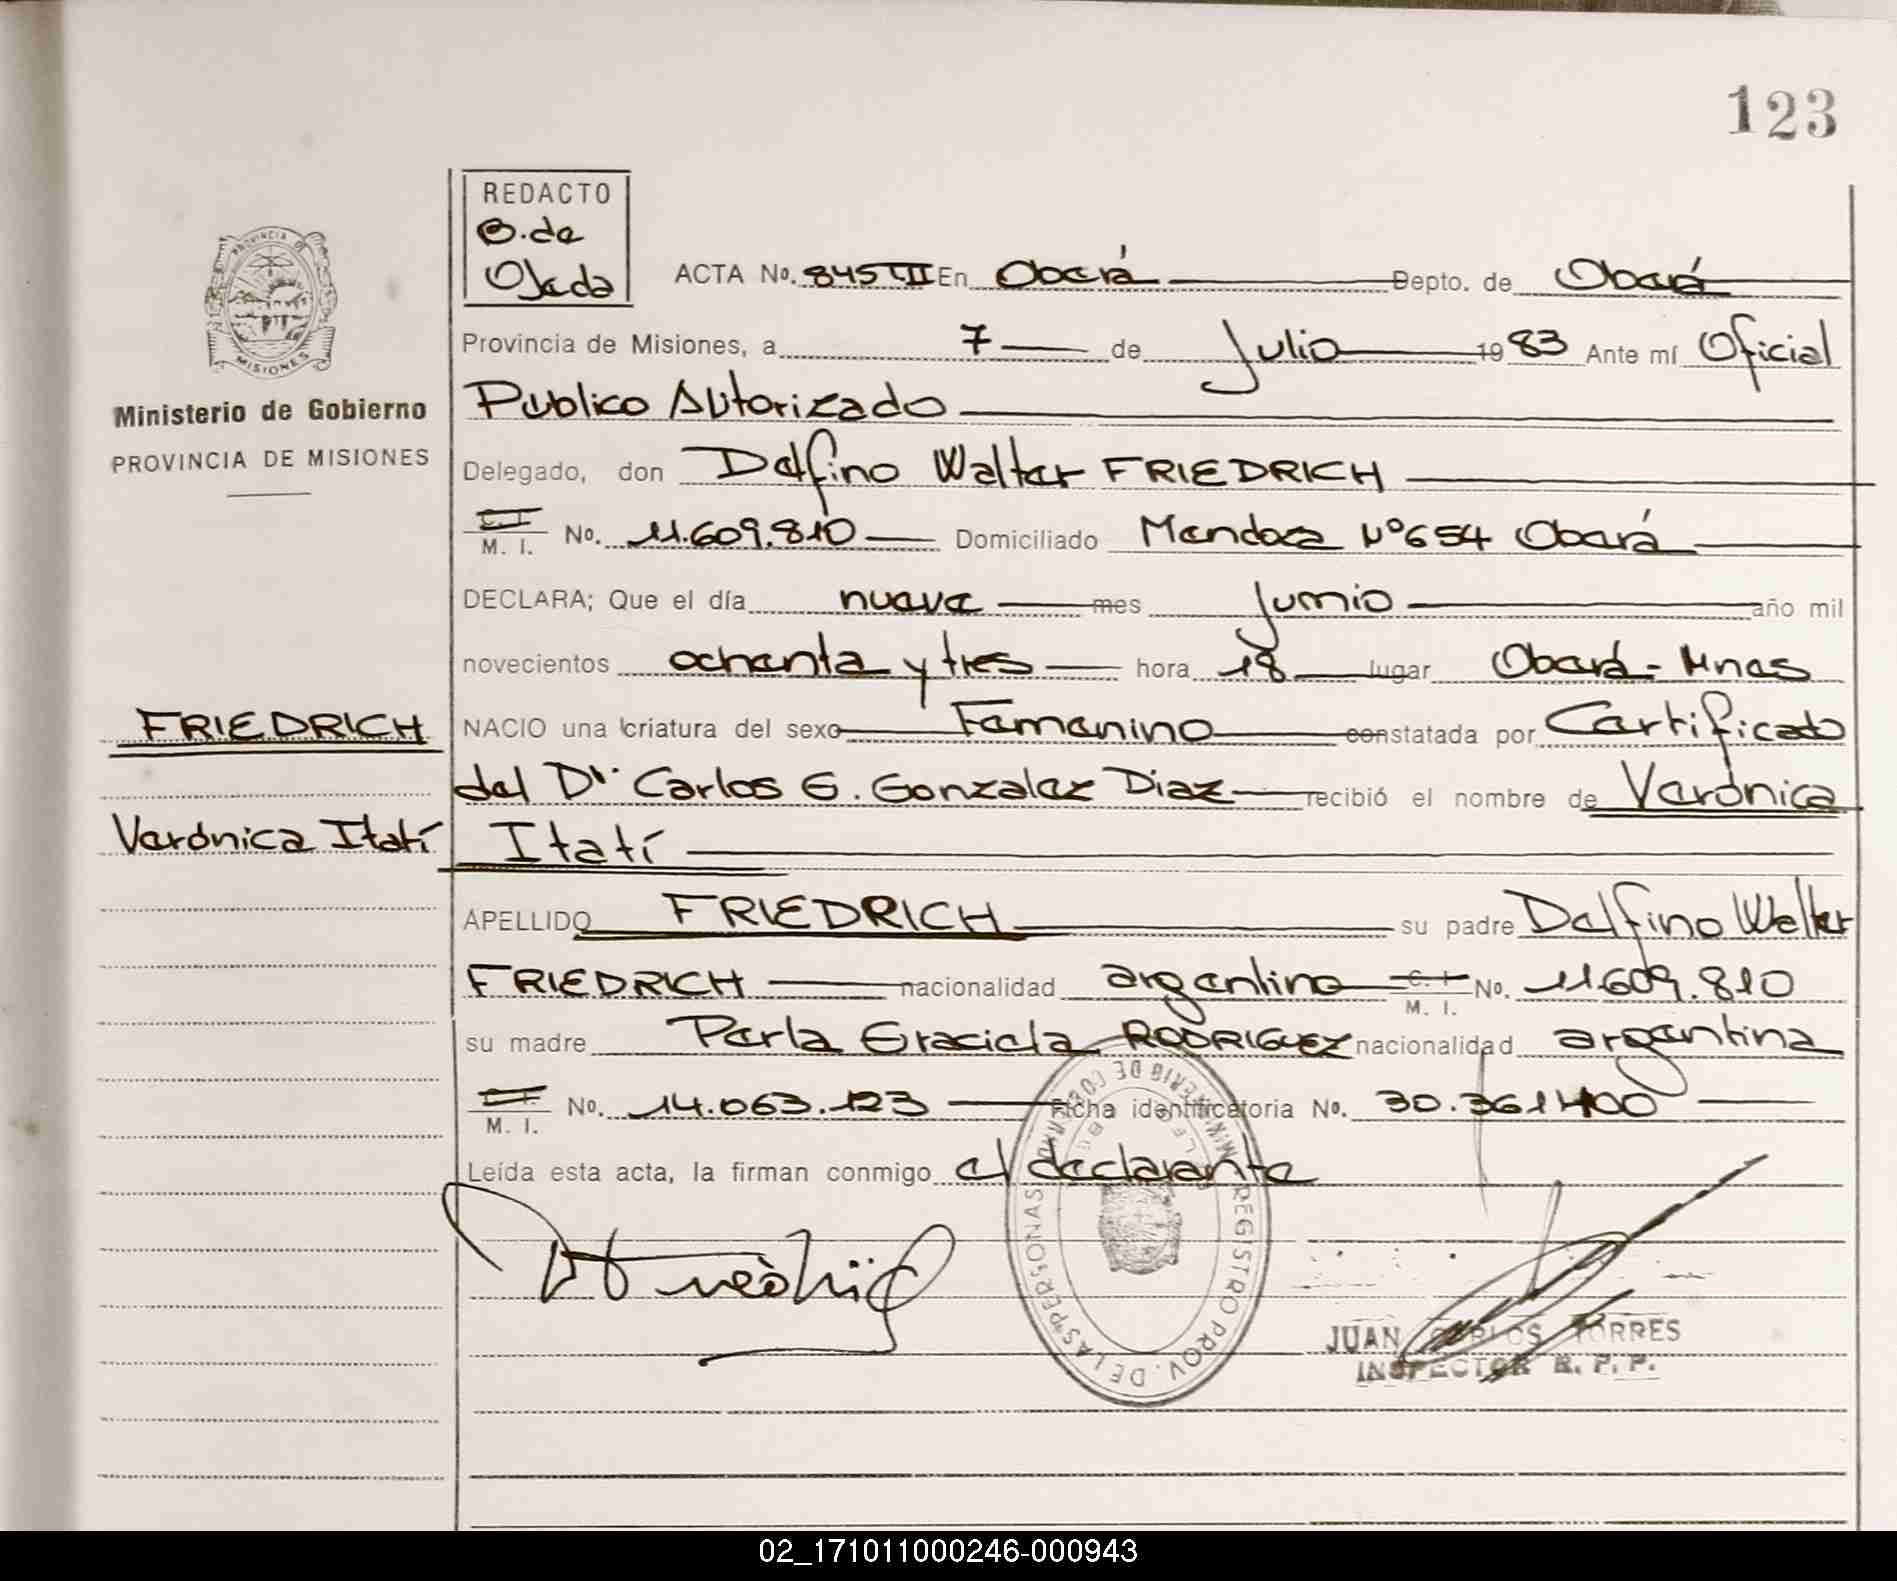 123
REDACTO
O. de
Ojeda
PROVINCIA DE
MISIONES
Ministerio de Gobierno
PROVINCIA DE MISIONES
ACTA No. 845 T II En Oberá Depto. de Oberá
Provincia de Misiones, a 7 de Julio 1983 Ante mí Oficial
Publico Autorizado
Delegado, don Delfino Walter FRIEDRICH
C. I.
M. I. No. 11.609.810 Domiciliado Mendoza Nº 654 Oberá
DECLARA; Que el día nueve mes Junio año mil
novecientos ochenta y tres hora 18 lugar Oberá - Mnes
FRIEDRICH
NACIO una criatura del sexo Femenino constatada por Certificado
del Dr. Carlos G. Gonzalez Diaz recibió el nombre de Verónica
Verónica Itatí
Itatí
APELLIDO FRIEDRICH su padre Delfino Walter
FRIEDRICH nacionalidad argentino C. I. No. 11609.810
M. I.
su madre Perla Graciela RODRIGUEZ nacionalidad argentina
C. I.
M. I. No. 14.063.123 Ficha identificatoria No. 30.361400
Leída esta acta, la firman conmigo el declarante
REGISTRO PROV. DE LAS PERSONAS
JUAN CARLOS TORRES
INSPECTOR R. P. P.
02_171011000246-000943